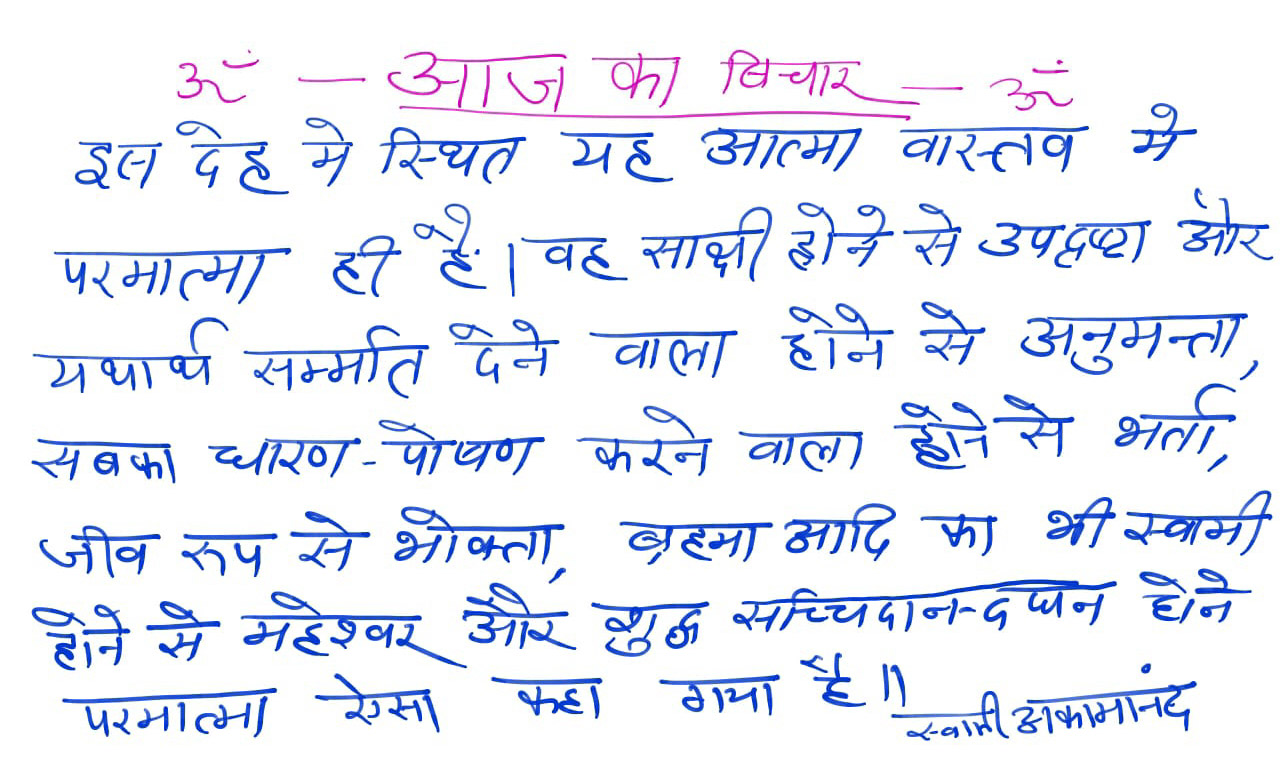 ॐ — आज का विचार — ॐ
इस देह मे स्थित यह आत्मा वास्तव मे
परमात्मा ही है। वह साक्षी होने से उपद्रष्टा और
यथार्थ सम्मति देने वाला होने से अनुमन्ता,
सबका धारण-पोषण करने वाला होने से भर्ता,
जीव रूप से भोक्ता, ब्रहमा आदि का भी स्वामी
होने से महेश्वर और शुद्ध सच्चिदानन्दघन होने
परमात्मा ऐसा कहा गया है॥
स्वामी अकामानंद